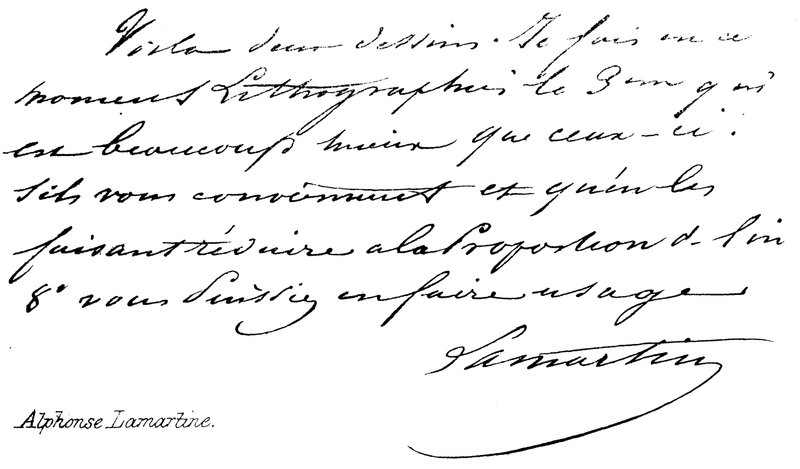 Voila deux dessins. Je fais en ce
moment Lithographier le 3em qui
est beaucoup mieux que ceux-ci.
S'ils vous conviennent et qu'en les
faisant réduire a la Proportion de l'in
8° vous Puissiez en faire usage
Lamartine
Alphonse Lamartine.